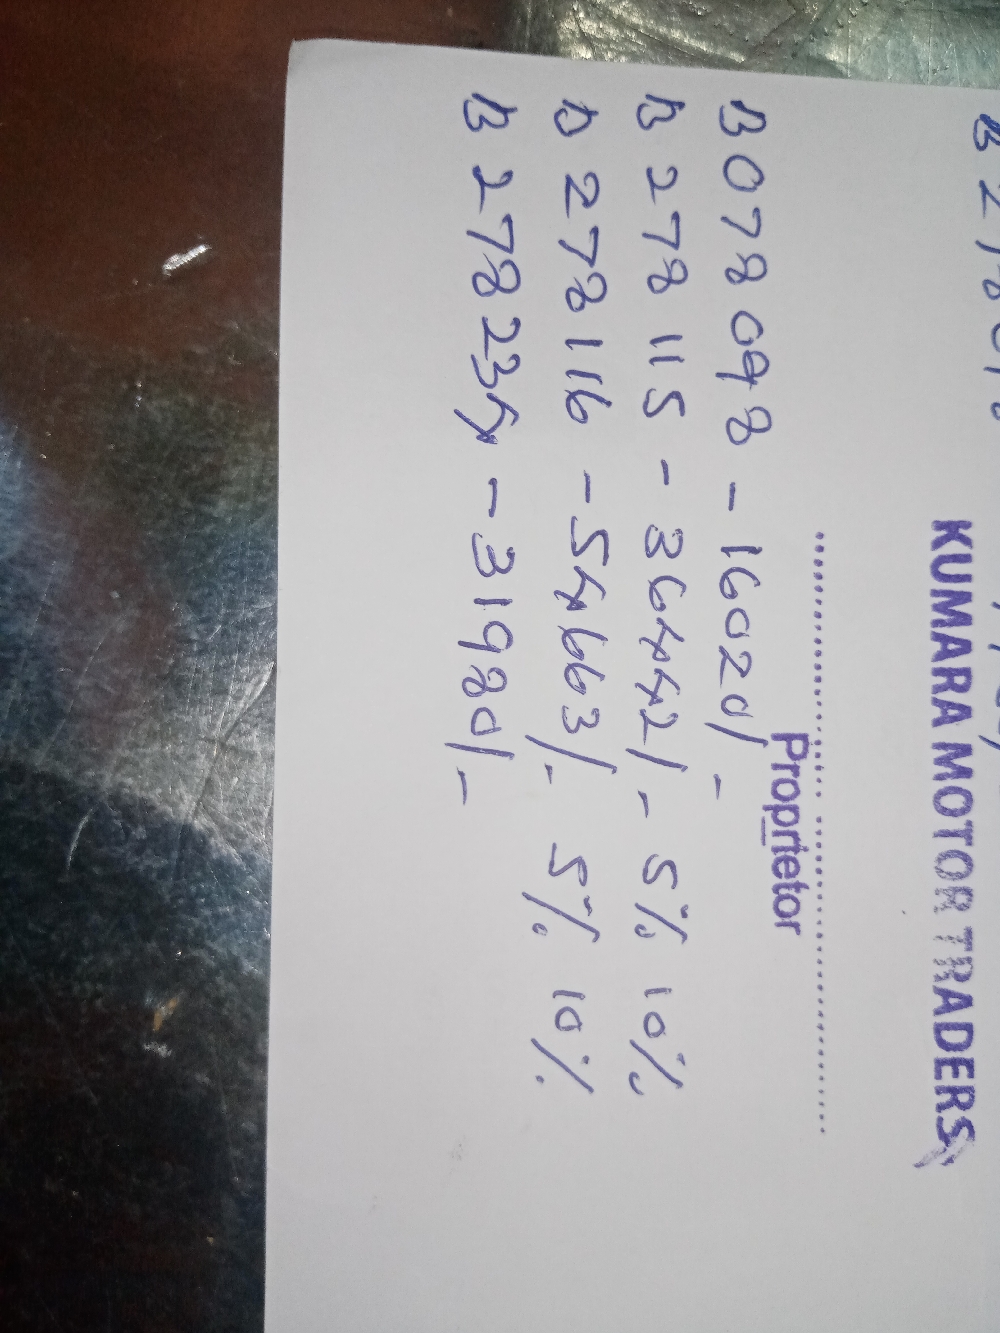 KUMARA MOTOR TRADERS
Proprietor
B 078098 - 16020/-
B 278115 - 36442/- 5% 10%
B 278116 - 54663/- 5% 10%
B 278234 - 31980/-